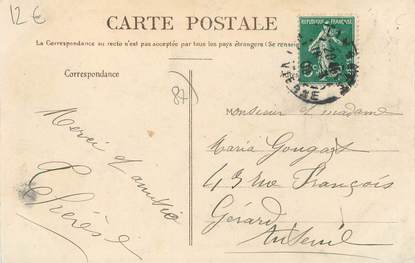 12 €
CARTE POSTALE
La Correspondance au recto n'est pas acceptée par tous les pays étrangers (Se renseigner
RÉPUBLIQUE FRANÇAISE
Correspondance
87
Merci d'amitié
Monsieur et madame
Maria Gougart
43 rue François
Gérard
Auteuil